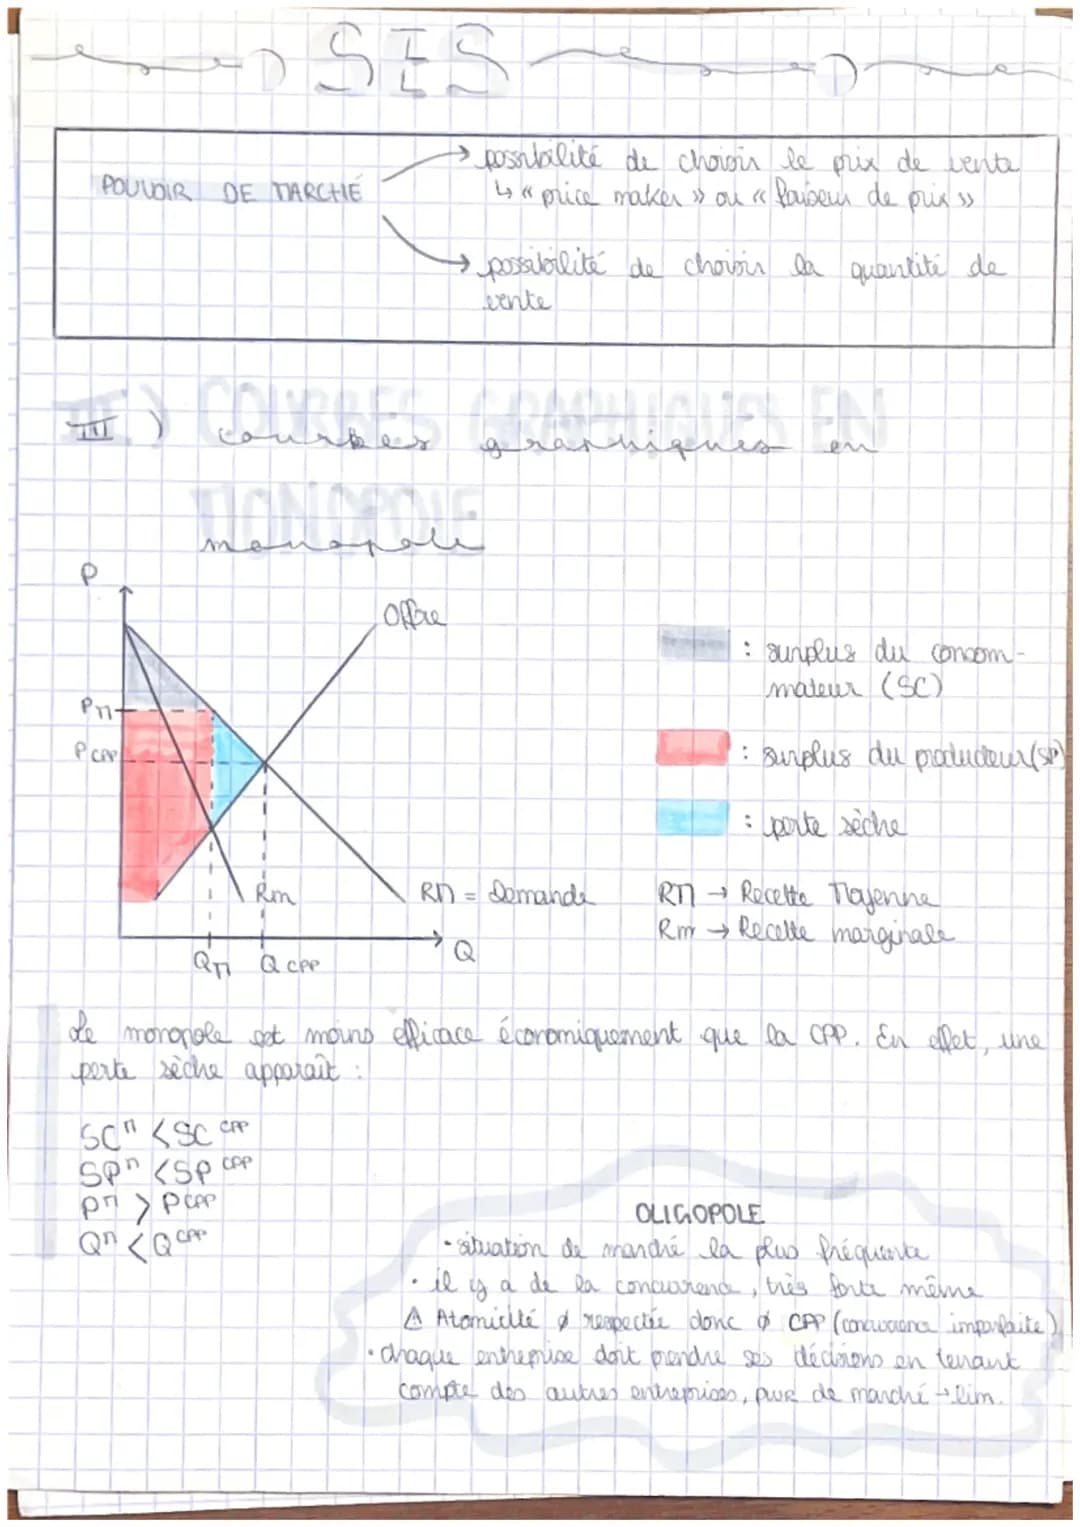 SES
POUVOIR DE MARCHÉ
→ possibilité de choisir le prix de vente
↳ « price maker » ou « faiseur de prix »
→ possibilité de choisir la quantité de
vente
III.) COURBES GRAPHIQUES EN
courbes graphiques en
MONOPOLE
monopole
P
Offre
PM
P CPP
Rm
RM = Demande
QM
Q CPP
Q
: surplus du consom-
mateur (SC)
: surplus du producteur (SP)
: perte sèche
RM → Recette Moyenne
Rm → Recette marginale
Le monopole est moins efficace économiquement que la CPP. En effet, une
perte sèche apparaît :
SC^M < SC^CPP
SP^M < SP^CPP
P^M > P^CPP
Q^M < Q^CPP
OLIGOPOLE
• situation de marché la plus fréquente
• il y a de la concurrence, très forte même
⚠ Atomicité ∅ respectée donc ∅ CPP (concurrence imparfaite)
• chaque entreprise doit prendre ses décisions en tenant
compte des autres entreprises, pvr de marché → lim.